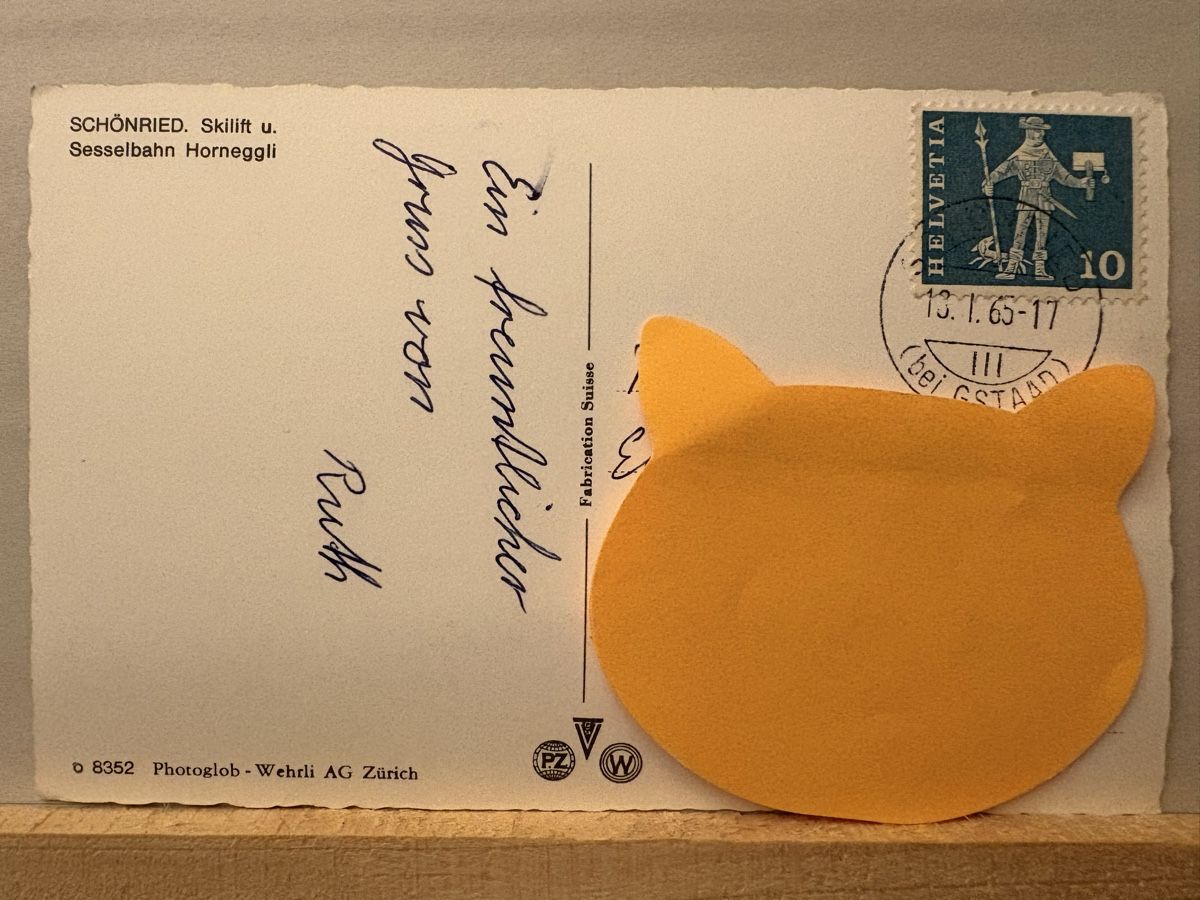 SCHÖNRIED. Skilift u.
Sesselbahn Horneggli
Ein freundlicher
Gruss von
Ruth
Fabrication Suisse
8352 Photoglob - Wehrli AG Zürich
PZ
W
HELVETIA
10
13. I. 65-17
III
(bei GSTAAD)